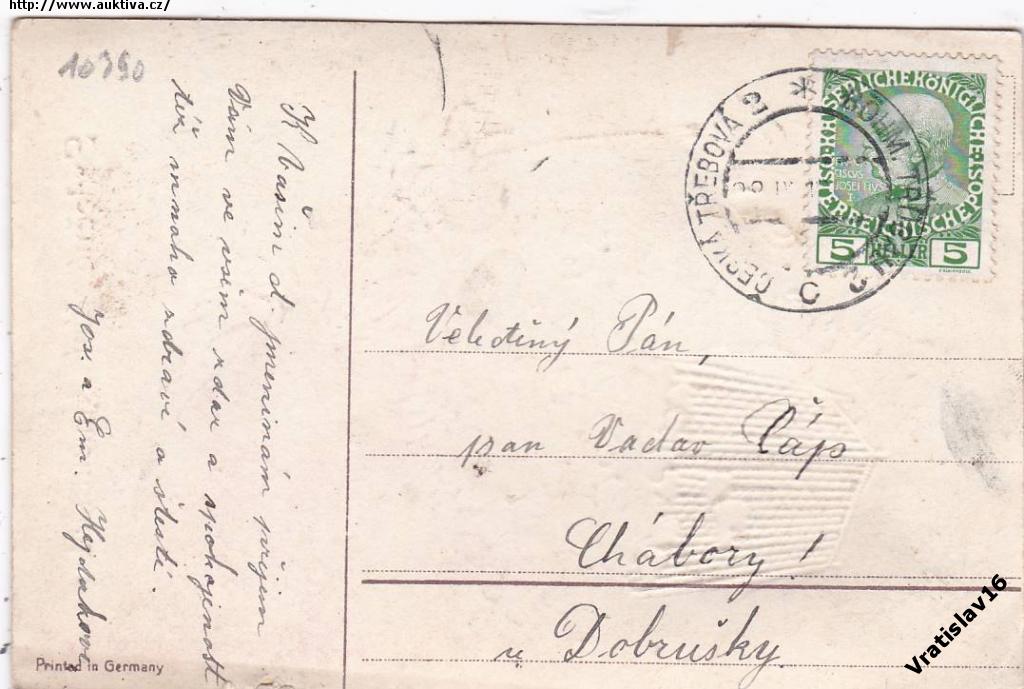 http://www.auktiva.cz/
10390
K Vašim d. jmeninám přejem
Vám ve všem zdar a spokojenost
též mnoho zdraví a štestí.
Jos. a Em. Hejdukovi
ČESKÁ TŘEBOVÁ 2
BÖHM. TRÜBAU 2
KAISERLICHE KÖNIGLICHE ÖSTERREICHISCHE POST
5 HELLER 5
Veletěný Pán,
pan Vaclav Čáp
Chábory!
u Dobrušky.
Printed in Germany
Vratislav16